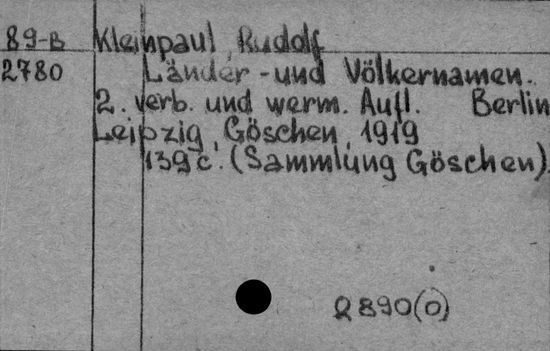 89-B Kleinpaul, Rudolf
2780 Länder- und Völkernamen.
2. verb. und werm. Aufl. Berlin
Leipzig, Göschen, 1919
139 c. (Sammlung Göschen).
2890(0)